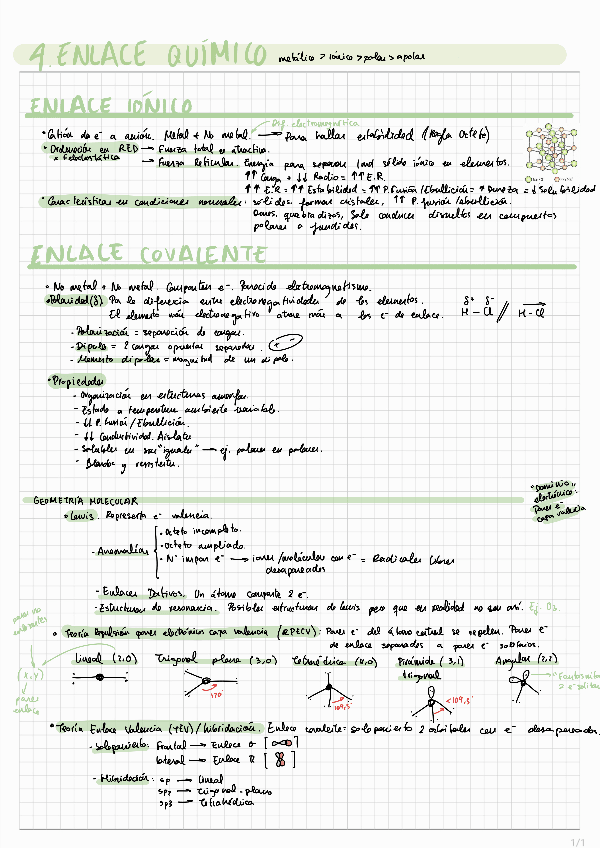 4. ENLACE QUÍMICO metálico > iónico > polar > apolar
ENLACE IÓNICO
Dif. electromagnética
• Cesión de e⁻ a anión. Metal + No metal. → Para hallar estabilidad (Regla Octeto)
• Ordenación en RED → Fuerza total es atractiva.
× Electrostática → Fuerza Reticular. Energía para separar 1mol sólido iónico en elementos.
↑↑ Carga + ↓↓ Radio = ↑↑ E.R.
↑↑ E.R = ↑↑ Estabilidad = ↑↑ P. Fusión / Ebullición = ↑ Dureza = ↓ Solubilidad
• Características en condiciones normales: sólidos forman cristales, ↑↑ P. fusión / ebullición.
Duros, quebradizos, Solo conducen disueltos en compuestos
polares o fundidos.
ENLACE COVALENTE
• No metal + No metal. Comparten e⁻. Parecido eletromagnetismo.
• Polaridad (δ). Por la diferencia entre electronegatividades de los elementos. δ+ δ-
El elemento más electronegativo atrae más a los e⁻ de enlace. H - Cl // H - Cl
- Polarización = separación de cargas.
- Dipolo = 2 cargas opuestas separadas. + -
- Momento dipolar = magnitud de un dipolo.
• Propiedades
- Organización en estructuras amorfas.
- Estado a temperatura ambiente variable.
- ↓↓ P. Fusión / Ebullición.
- ↓↓ Conductividad. Aislante
- Solubles en sus "iguales" → ej. polares en polares.
- Blandos y resistentes.
• Dominio
electrónico:
Pares e⁻
capa valencia
GEOMETRÍA MOLECULAR
• Lewis. Representa e⁻ valencia.
- Anomalías
• Octeto incompleto.
• Octeto ampliado.
• Nº impar e⁻ → iones/moléculas con e⁻ = Radicales libres
desapareados
- Enlaces Dativos. Un átomo comparte 2 e⁻.
- Estructuras de resonancia. Posibles estructuras de lewis pero que en realidad no son así. Ej. O3.
pares no
enlazantes
• Teoría Repulsión pares electrónicos capa valencia (RPECV): Pares e⁻ del átomo central se repelen. Pares e⁻
de enlace separados a pares e⁻ solitarios.
Lineal (2,0) Trigonal plana (3,0) Tetraédrica (4,0) Pirámide (3,1) Angular (2,2)
trigonal
(X,Y)
pares
enlace
120°
109,5°
<109,5°
> e⁻ solitarios
• Teoría Enlace Valencia (TEV) / Hibridación. Enlace covalente = solapamiento 2 orbitales con e⁻ desapareados.
- Solapamiento: Frontal → Enlace σ
lateral → Enlace π
- Hibridación: sp → lineal
sp2 → trigonal-plana
sp3 → Tetraédrica
1/1